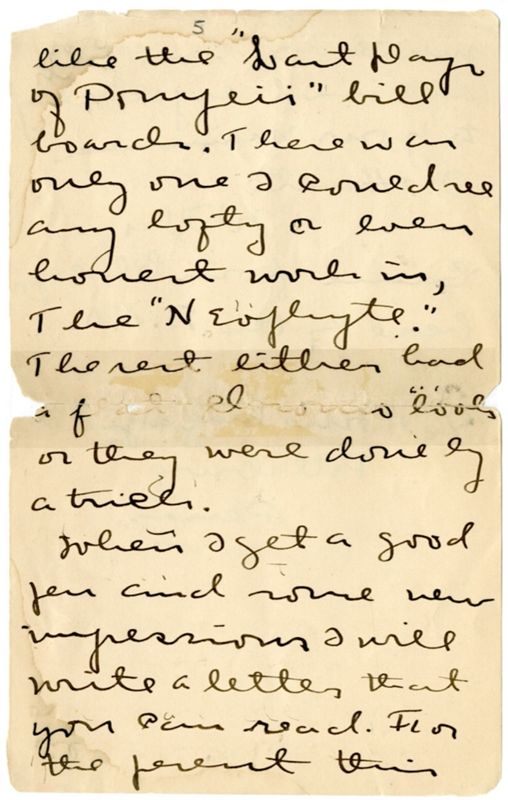 5
like the "Last Days
of Pompeii" bill
boards. There was
only one I could see
any lofty or even
honest work in,
The "Neophyte."
The rest either had
a look
or they were done by
a trick.
When I get a good
pen and some new
impressions I will
write a letter that
you can read. For
the present this